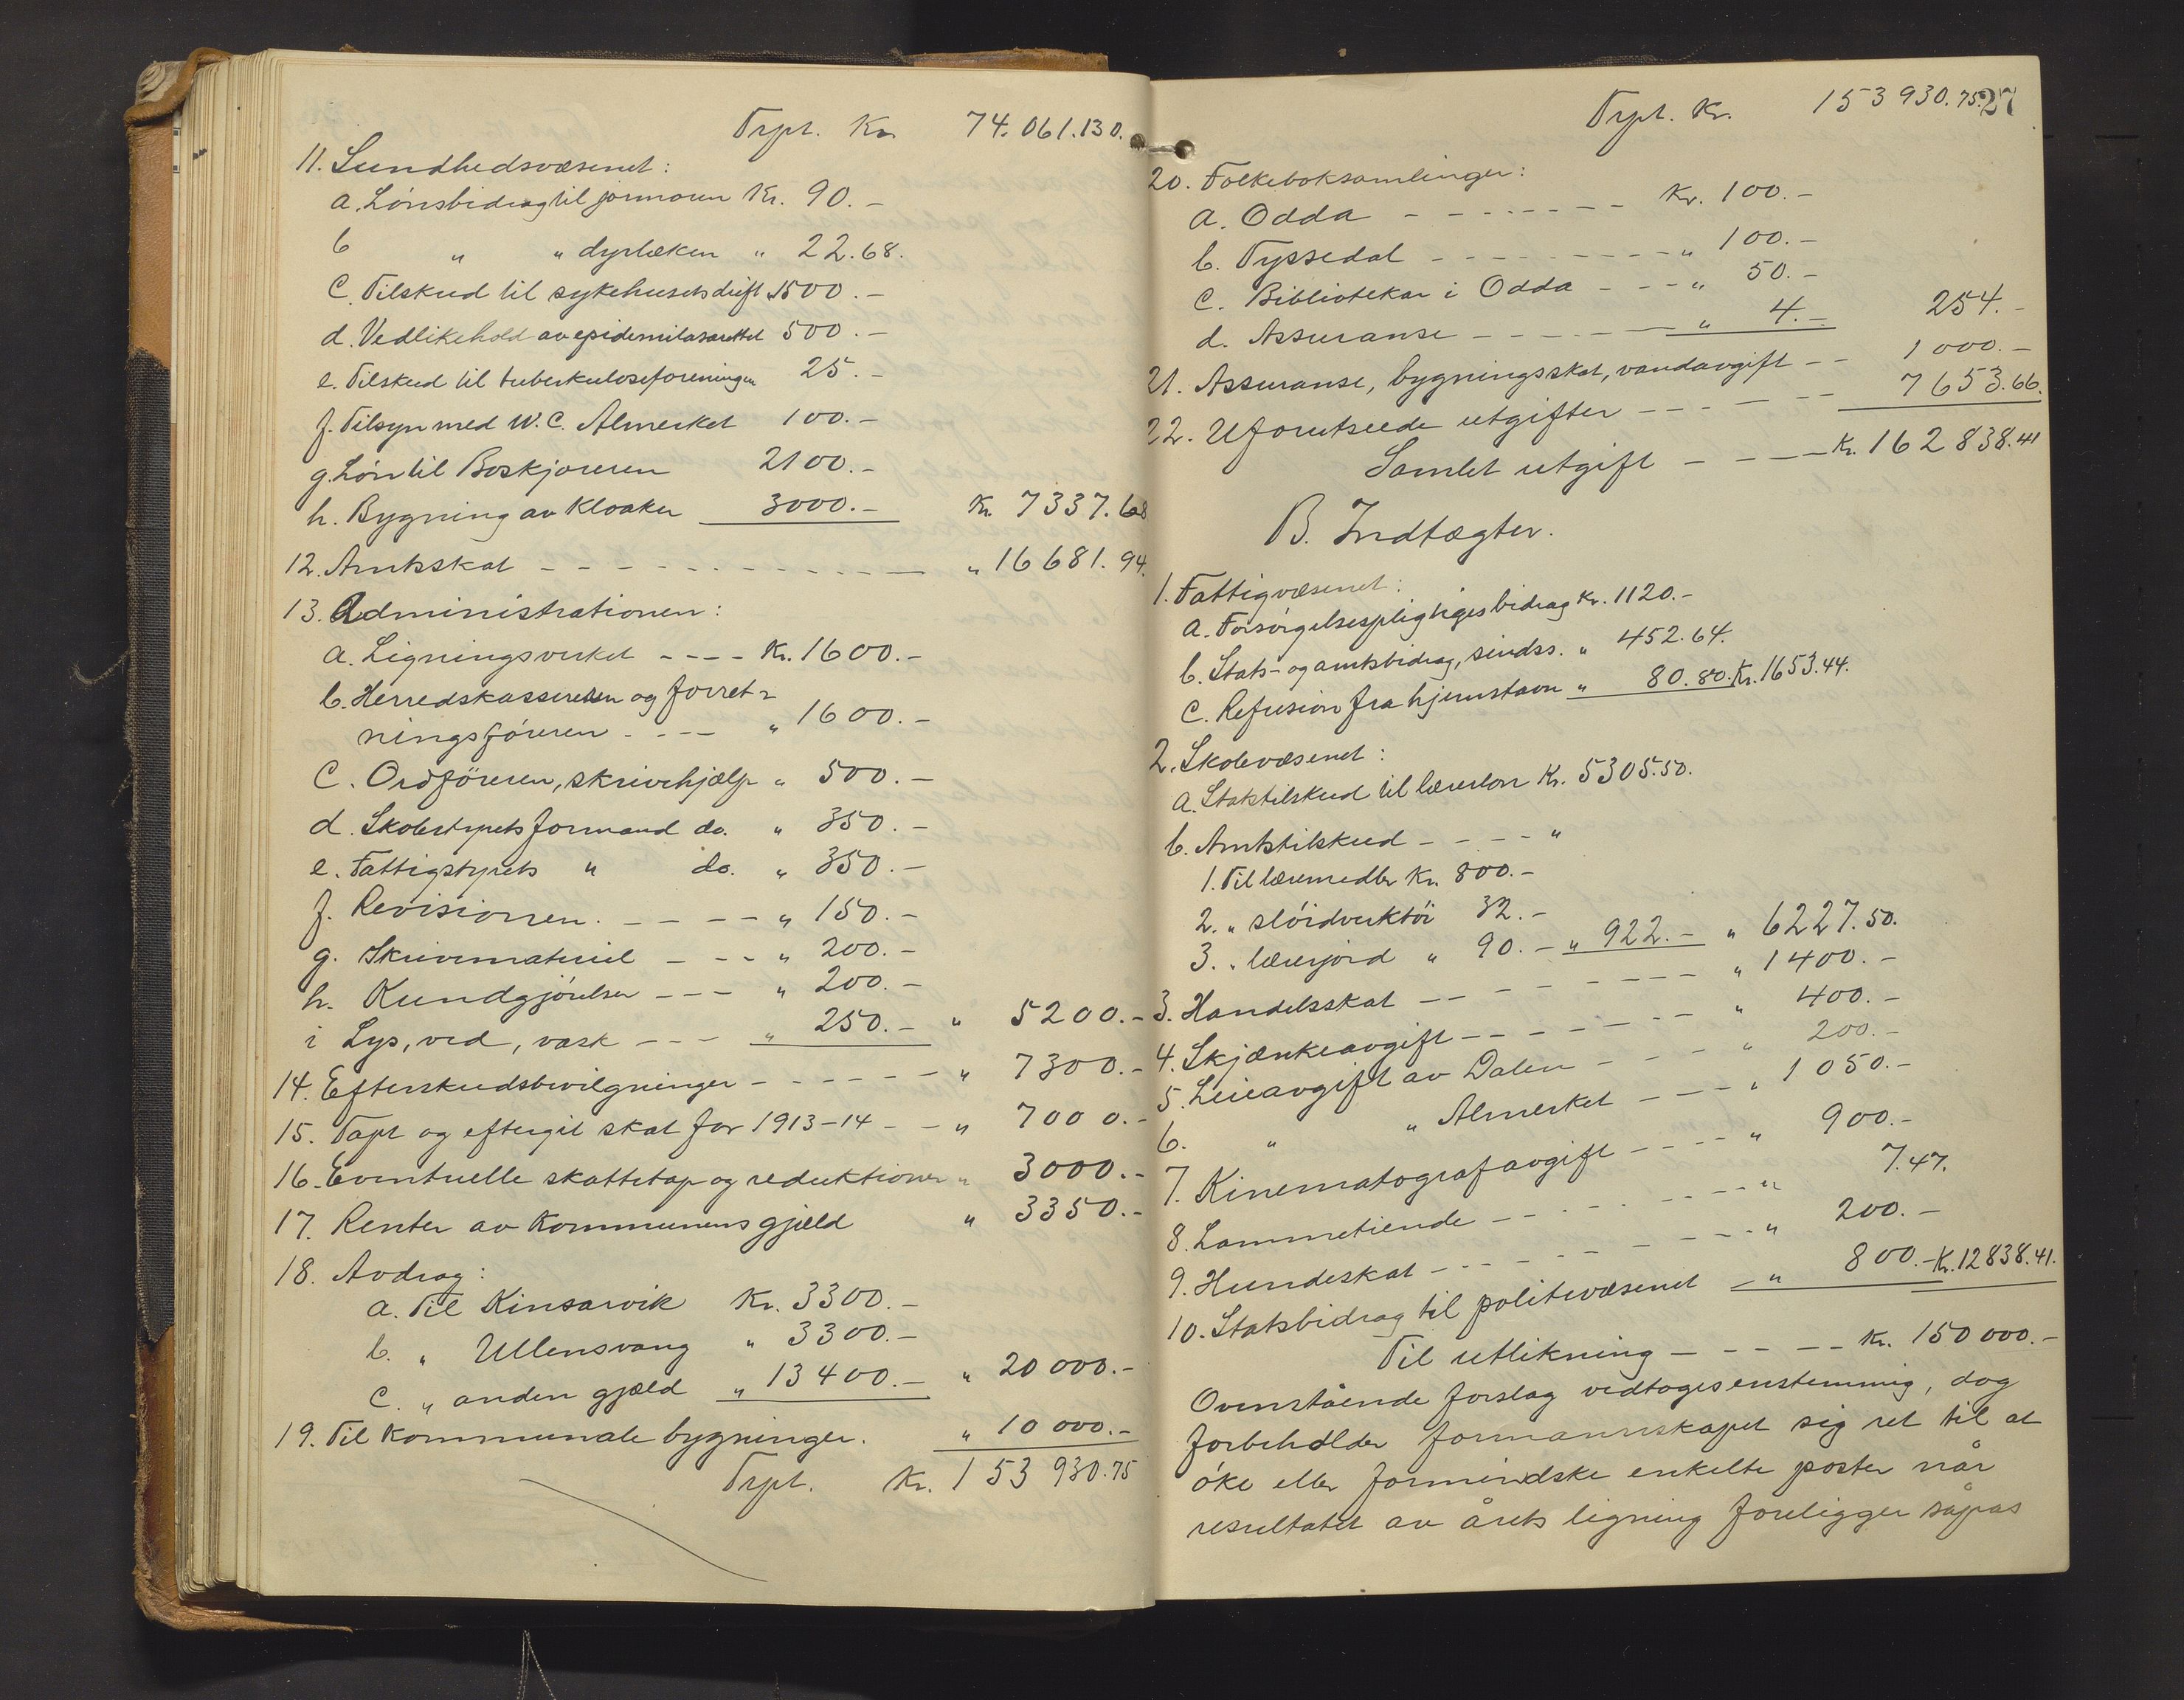 Trpt. Kr. 74.061.130.
11. Sundhedsvæsenet:
a. Lønsbidrag til jormoren Kr. 90.-
b " " dyrlæken " 22.68.
C. Tilskud til sykehusets drift 1500.-
d. Vedlikehold av epidemilasarettet 500.-
e. Tilskud til tuberkuloseforeningen 25.-
f. Tilsyn med W.C. Almerket 100.-
g. Løn til Boskjøreren 2100.-
h. Bygning av Kloaker 3000.- Kr. 7337.68
12. Amtsskat - - - - - - - - - - - " 16681.94.
13. Administrationen:
a. Ligningsverket - - - - Kr. 1600.-
b. Herredskassereren og forret-
ningsføreren - - - - " 1600.-
C. Ordføreren, skrivehjælp " 500.-
d. Skolestyrets formand do. " 350.-
e. Fattigstyrets " do. " 350.-
f. Revisionen - - - - - " 150.-
g. Skrivemateriel - - - " 200.-
h. Kundgjørelser - - - " 200.-
i Lys, ved, vask - - - " 250.- " 5200.-
14. Efterskudsbevilgninger - - - - - - " 7300.-
15. Tapt og eftergit skat for 1913-14 - - " 7000.-
16. Eventuelle skattetap og reduktioner " 3000.-
17. Renter av Kommunens gjæld " 3350.-
18. Avdrag:
a. Til Kinsarvik Kr. 3300.-
b. " Ullensvang " 3300.-
C. " anden gjæld " 13400.- " 20000.-
19. Til Kommunale bygninger. " 10000.-
Trpt. Kr. 153930.75
27
Trpt. Kr. 153930.75
20. Folkeboksamlinger:
a. Odda - - - - - - - - Kr. 100.-
b. Tyssedal - - - - - - - - " 100.-
C. Bibliotekar i Odda - - - " 50.-
d. Assuranse - - - - - - " 4.- 254.-
21. Assuranse, bygningsskat, vandavgift - - 1000.-
22. Uforutseede utgifter - - - - - 7653.66.
Samlet utgift - - - - Kr. 162838.41
B. Indtægter.
1. Fattigvæsenet:
a. Forsörgelsespligtiges bidrag Kr. 1120.-
b. Stats- og amtsbidrag, sindss. " 452.64.
C. Refusion fra hjemstavn " 80.80. Kr. 1653.44.
2. Skolevæsenet:
a. Statstilskud til lærerløn Kr. 5305.50.
b. Amtstilskud - - - - "
1. Til læremedler Kr. 800.-
2. " slöidverktöi 32.-
3. " lærerjord " 90.- " 922.- " 6227.50.
3. Handelsskat - - - - - - - - " 1400.-
4. Skjænkeavgift - - - - - - - " 400.-
5. Leieavgift av Dalen - - - - " 200.-
6. " " Almerket - - - - " 1050.-
7. Kinematografavgift - - - - " 900.-
8. Lammetiende - - - - - - - " 7.47.
9. Hundeskat - - - - - - - - " 200.-
10. Statsbidrag til politivæsenet - " 800.- Kr. 12838.41.
Til utlikning - - - - - Kr. 150000.-
Ovenstående forslag vedtoges enstemmig, dog
forbeholder formannskapet sig ret til at
öke eller formindske enkelte poster når
resultatet av årets ligning foreligger såpas